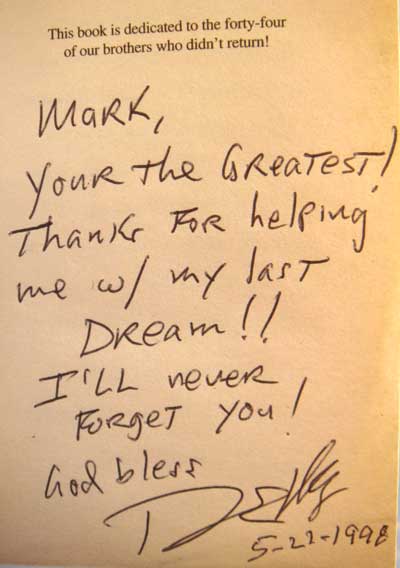 This book is dedicated to the forty-four
of our brothers who didn't return!
MARK,
YOUR the GREATEST!
Thanks FOR helping
me w/ my last
DREAM!!
I'LL never
FORGET you!
God bless
5-22-1998